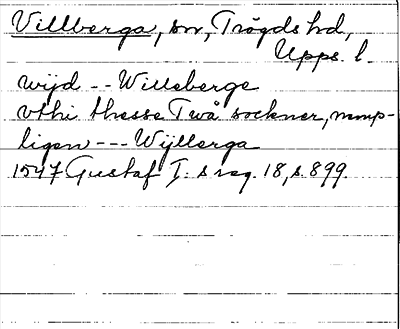 Villberga, sn, Trögds hd,
Upps. l.
wijd -- Willeberge
vthi thesse Twå sockner, nemp-
ligen --- Wijllerga
1547 Gustaf I:s reg. 18, s. 899.